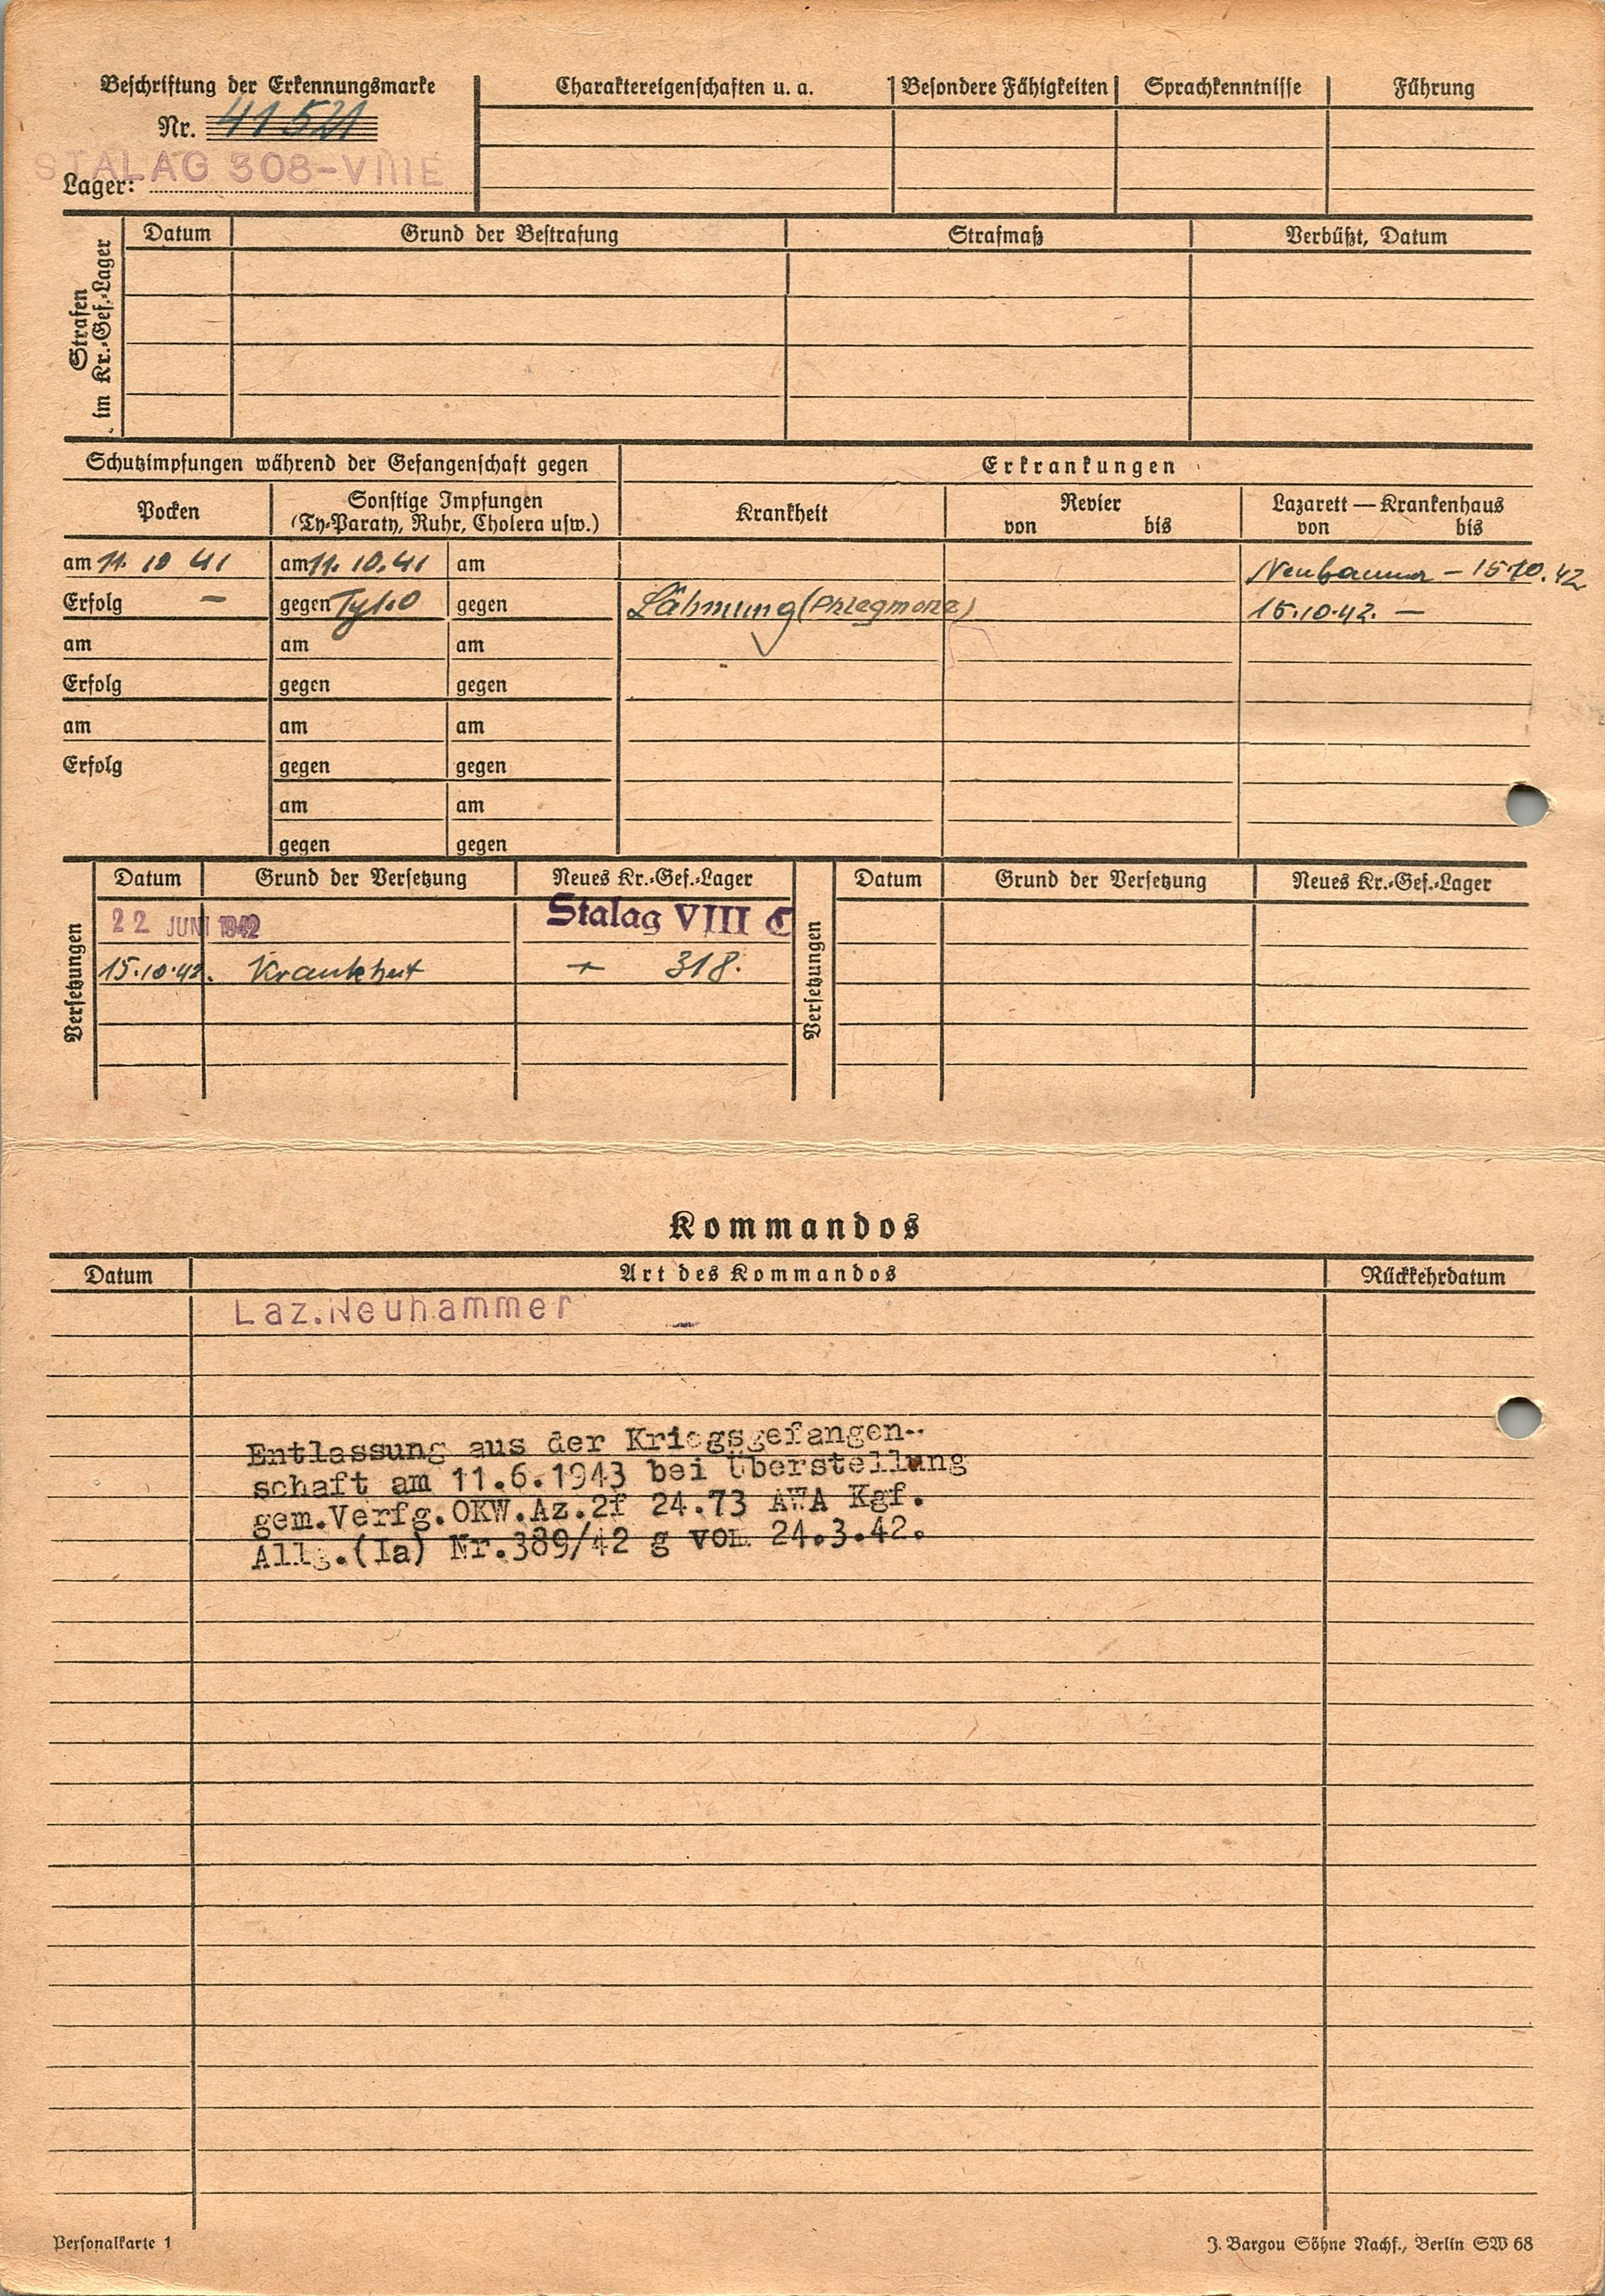 Beschriftung der Erkennungsmarke
Nr. 41521
STALAG 308-VIIIE
Lager:
Charaktereigenschaften u. a.
Besondere Fähigkeiten
Sprachkenntnisse
Führung
Strafen im Kr.-Gef.-Lager
Datum
Grund der Bestrafung
Strafmaß
Verbüßt, Datum
Schutzimpfungen während der Gefangenschaft gegen
Erkrankungen
Pocken
Sonstige Impfungen
(Ty-Paraty, Ruhr, Cholera usw.)
Krankheit
Revier
von bis
Lazarett — Krankenhaus
von bis
am 11. 10 41 am 11. 10.41 am
Neuhammer - 15.10.42
Erfolg – gegen gegen Lähmung (Phlegmone) 15.10.42. —
am am am
Erfolg gegen gegen
am am am
Erfolg gegen gegen
am am
gegen gegen
Versetzungen
Datum Grund der Versetzung Neues Kr.-Gef.-Lager
22 JUNI 1942 Stalag VIII C
15.10.42. Krankheit 318.
Versetzungen
Datum Grund der Versetzung Neues Kr.-Gef.-Lager
Kommandos
Datum Art des Kommandos Rückkehrdatum
Laz.Neuhammer
Entlassung aus der Kriegsgefangen-
schaft am 11.6.1943 bei Überstellung
gem.Verfg.OKW.Az.2f 24.73 AWA Kgf.
Allg.(Ia) Nr.389/42 g vom 24.3.42.
Personalkarte 1
J. Bargou Söhne Nachf., Berlin SW 68